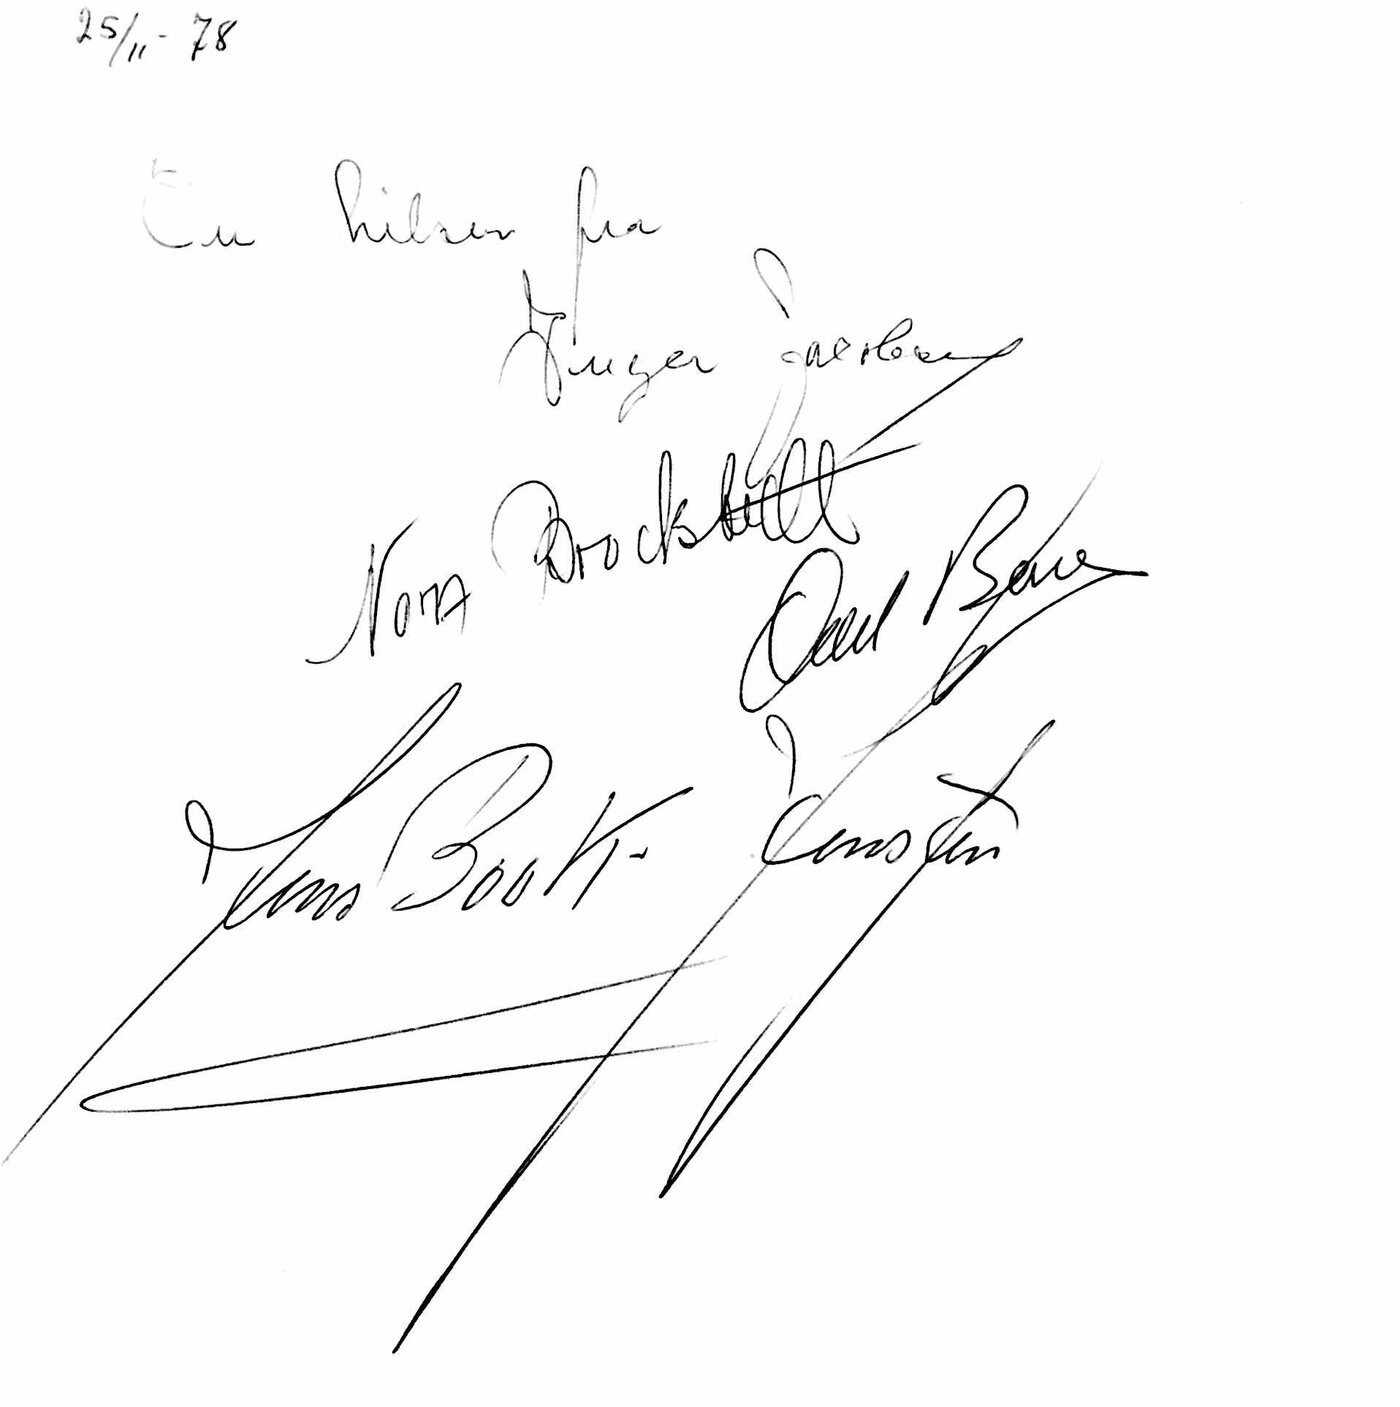 25/11-78
En hilsen fra
Inger Jacobsen
Nora Brockstedt
Jens Book-Jenssen